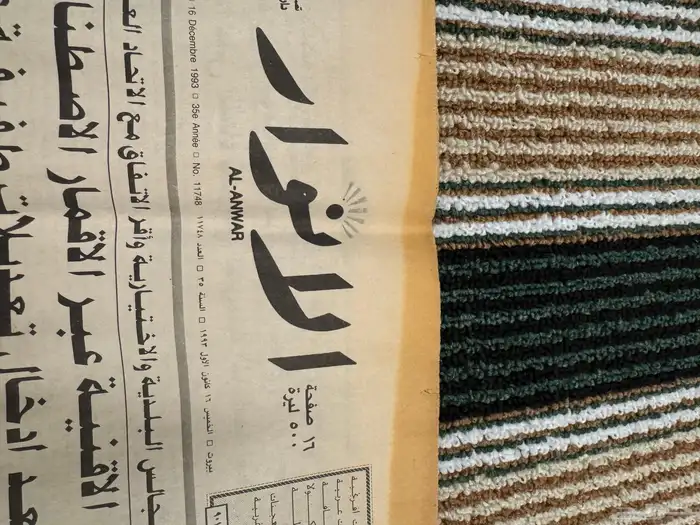 الانوار
AL-ANWAR
١٦ صفحة
٥٠٠ ليرة
بيروت □ الخميس ١٦ كانون الاول ١٩٩٣ □ السنة ٣٥ □ العدد ١١٧٤٨
16 Décembre 1993 □ 35e Année □ No. 11748
جالس البلدية والاختيارية وأقر الاتفاق مع الاتحاد
الاقنية عبر الاقمار
ادخال تعديلات طفيفة